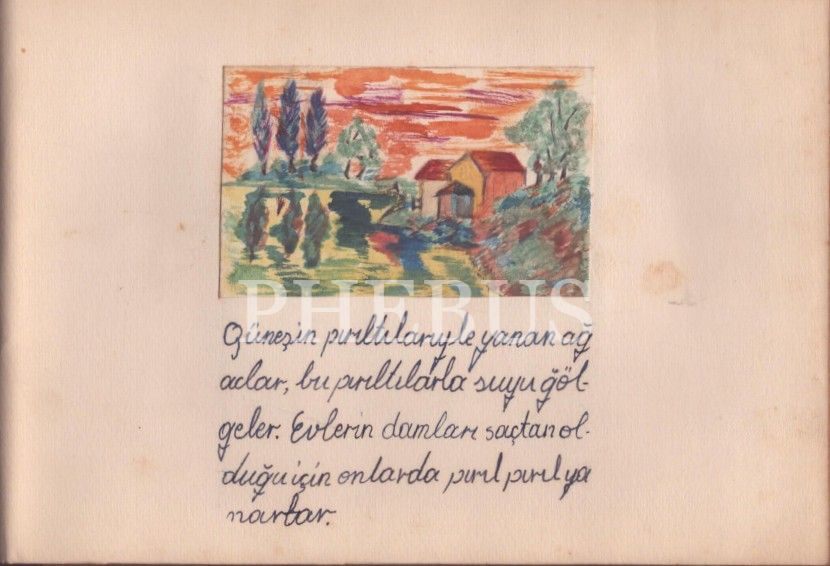 PHEBUS
Güneşin pırıltılarıyle yanan ağ
açlar, bu pırıltılarla suyu göl-
geler. Evlerin damları saçtan ol-
duğu için onlarda pırıl pırıl ya
narlar.